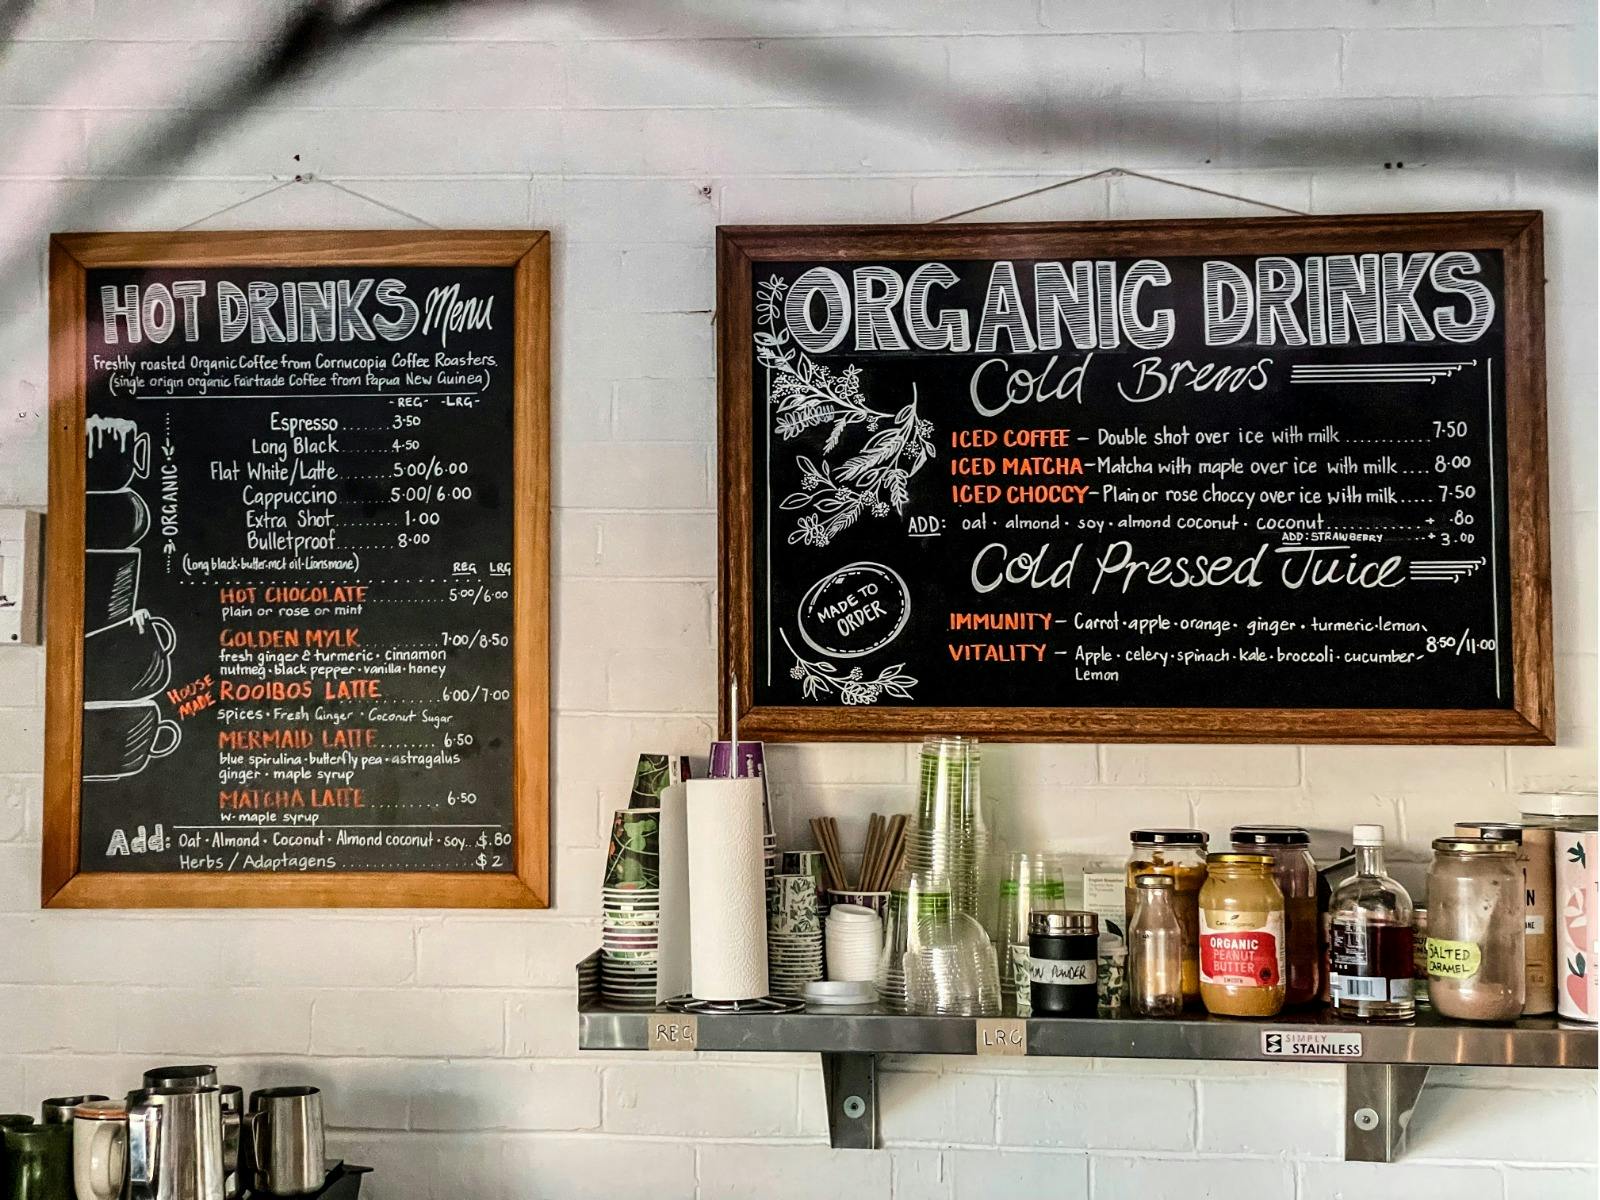 HOT DRINKS Menu
Freshly roasted Organic Coffee from Cornucopia Coffee Roasters.
(single origin organic Fairtrade Coffee from Papua New Guinea)
-REG- -LRG-
Espresso ....... 3.50
Long Black ....... 4.50
Flat White/Latte ....... 5.00/6.00
Cappuccino ....... 5.00/6.00
Extra Shot ....... 1.00
Bulletproof ....... 8.00
(Long black·butter·mct oil·Lionsmane)
ORGANIC
REG LRG
HOT CHOCOLATE ....... 5.00/6.00
plain or rose or mint
GOLDEN MYLK ....... 7.00/8.50
fresh ginger & turmeric · cinnamon
nutmeg · black pepper · vanilla · honey
HOUSE MADE
ROOIBOS LATTE ....... 6.00/7.00
spices · Fresh Ginger · Coconut Sugar
MERMAID LATTE ....... 6.50
blue spirulina · butterfly pea · astragalus
ginger · maple syrup
MATCHA LATTE ....... 6.50
w- maple syrup
Add: Oat · Almond · Coconut · Almond coconut · soy...$.80
Herbs / Adaptagens ....... $2
ORGANIC DRINKS
Cold Brews
ICED COFFEE – Double shot over ice with milk ....... 7.50
ICED MATCHA – Matcha with maple over ice with milk .... 8.00
ICED CHOCCY – Plain or rose choccy over ice with milk..... 7.50
ADD: oat · almond · soy · almond coconut · coconut ....... + .80
ADD: STRAWBERRY ....... + 3.00
Cold Pressed Juice
MADE TO
ORDER
IMMUNITY – Carrot · apple · orange · ginger · turmeric · lemon
VITALITY – Apple · celery · spinach · kale · broccoli · cucumber - 8.50/11.00
Lemon
ORGANIC
PEANUT
BUTTER
SMOOTH
POWDER
SALTED
CARAMEL
REG
LRG
SIMPLY
STAINLESS